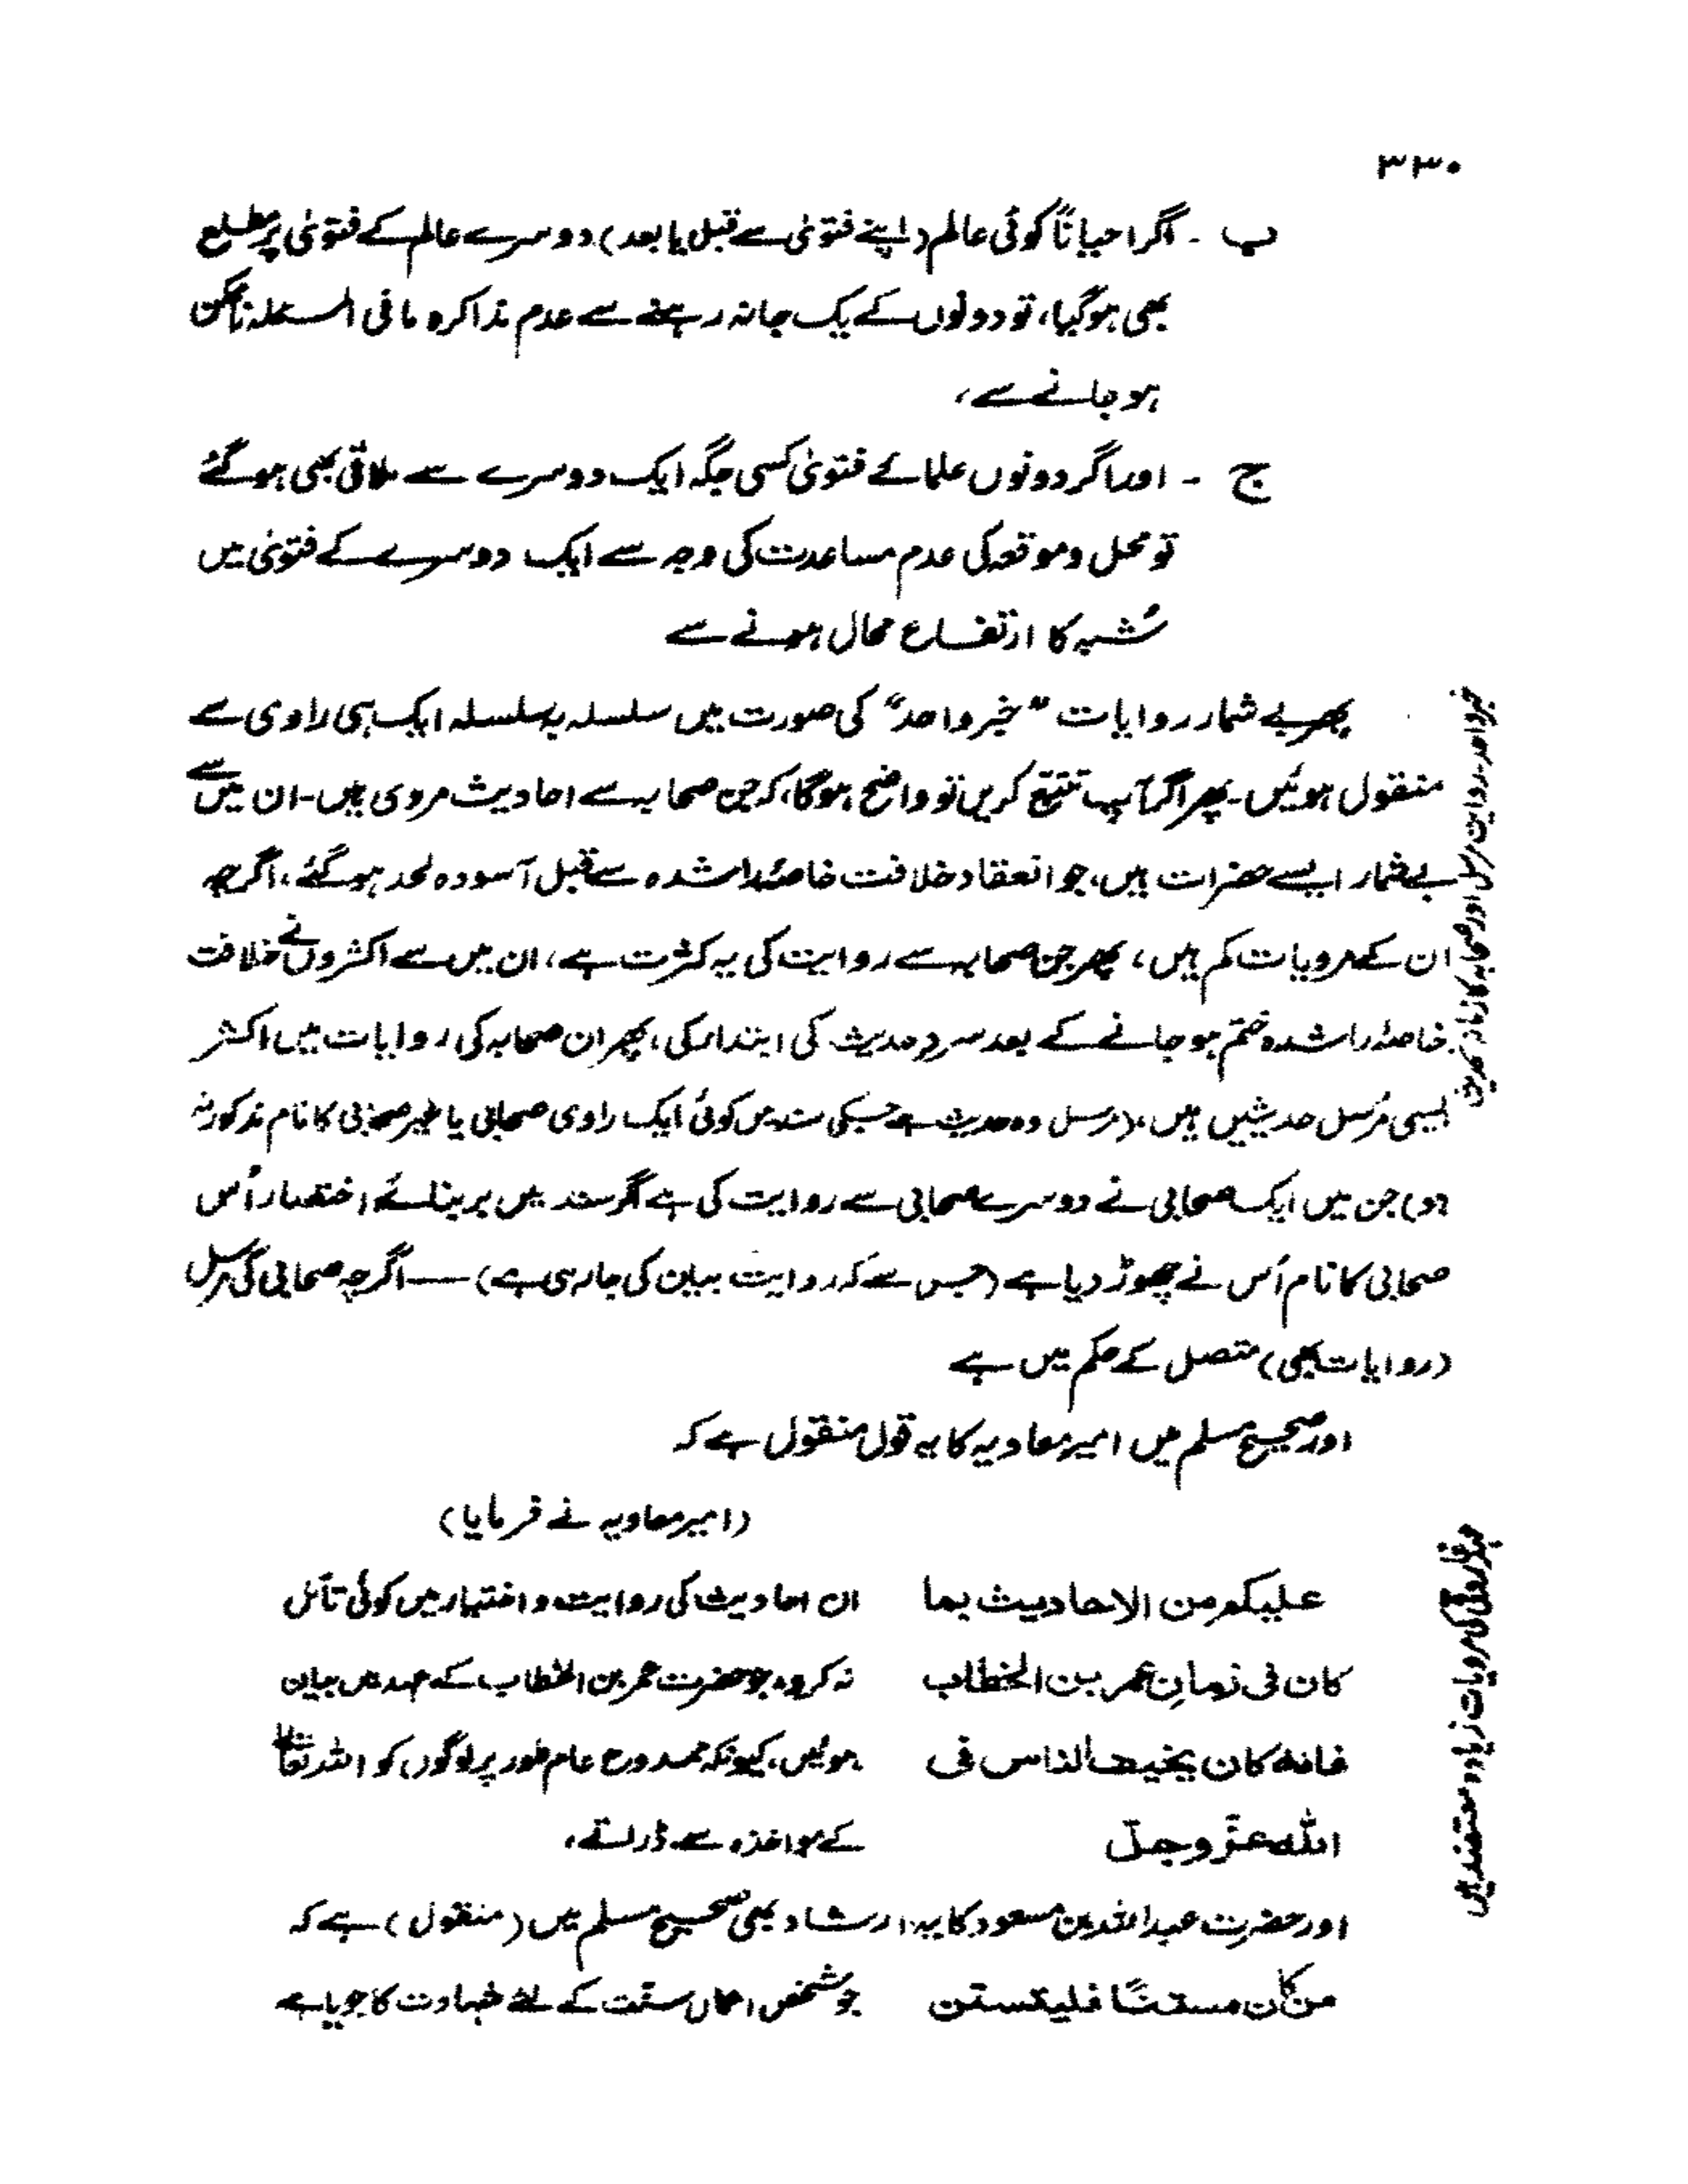 ۳۳۰
ب - اگر احیاناً کوئی عالم (اپنے فتویٰ سے قبل یا بعد) دوسرے عالم کے فتویٰ پر مطلع
بھی ہوگیا، تو دونوں کے یک جا نہ رہنے سے عدم مذاکرہ ما فی المسئلہ ناممکن
ہو جانے سے،
ج - اور اگر دونوں علمائے فتویٰ کسی جگہ ایک دوسرے سے ملاقی بھی ہوگئے
تو محل و موقعہ کی عدم مساعدت کی وجہ سے ایک دوسرے کے فتویٰ میں
شُبہ کا ارتفاع محال ہونے سے
پھر بے شمار روایات "خبر واحد" کی صورت میں سلسلہ بہ سلسلہ ایک ہی راوی سے
منقول ہوئیں۔ پھر اگر آپ تتبع کریں تو واضح ہوگا، کہ جن صحابہ سے احادیث مروی ہیں۔ ان میں سے
بے شمار ایسے حضرات ہیں، جو انعقاد خلافت خاصۂ راشدہ سے قبل آسودہ لحد ہوگئے، اگرچہ
ان کے مرویات کم ہیں، پھر جن صحابہ سے روایت کی یہ کثرت ہے، ان میں سے اکثروں نے خلافت
خاصۂ راشدہ ختم ہو جانے کے بعد سرد حدیث کی ابتدا کی، پھر ان صحابہ کی روایات میں اکثر
ایسی مُرسل حدیثیں ہیں، (مرسل وہ حدیث ہے جسکی سند میں کوئی ایک راوی صحابی یا غیر صحابی کا نام مذکور نہ
ہو) جن میں ایک صحابی نے دوسرے صحابی سے روایت کی ہے مگر سند میں بر بنائے اختصار اُس
صحابی کا نام اُس نے چھوڑ دیا ہے (جس سے کہ روایت بیان کی جا رہی ہے) — اگرچہ صحابی کی مرسل
(روایات بھی) متصل کے حکم میں ہے
اور صحیح مسلم میں امیر معاویہ کا یہ قول منقول ہے کہ
(امیر معاویہ نے فرمایا)
علیکم من الاحادیث بما ان احادیث کی روایت و اختیار میں کوئی تأمل
کان فی زمانِ عمر بن الخطاب نہ کرو، جو حضرت عمر بن الخطاب کے عہد میں بیان
فانہ کان یخیف الناس فی ہوئیں، کیونکہ ممدوح عام طور پر لوگوں کو اللہ تعالیٰ
اللہ عزّ وجلّ کے مواخذہ سے ڈراتے،
اور حضرت عبداللہ بن مسعود کا یہ ارشاد بھی صحیح مسلم میں (منقول) ہے کہ
من کان مستنًا فلیستن جو شخص اعمال سنت کے لئے شہادت کا جویا ہے
خبر واحد - روایت مرسل اور صحابہ کا زمانہ حدیث
عہد فاروقی کی مرویات زیادہ مستند ہیں